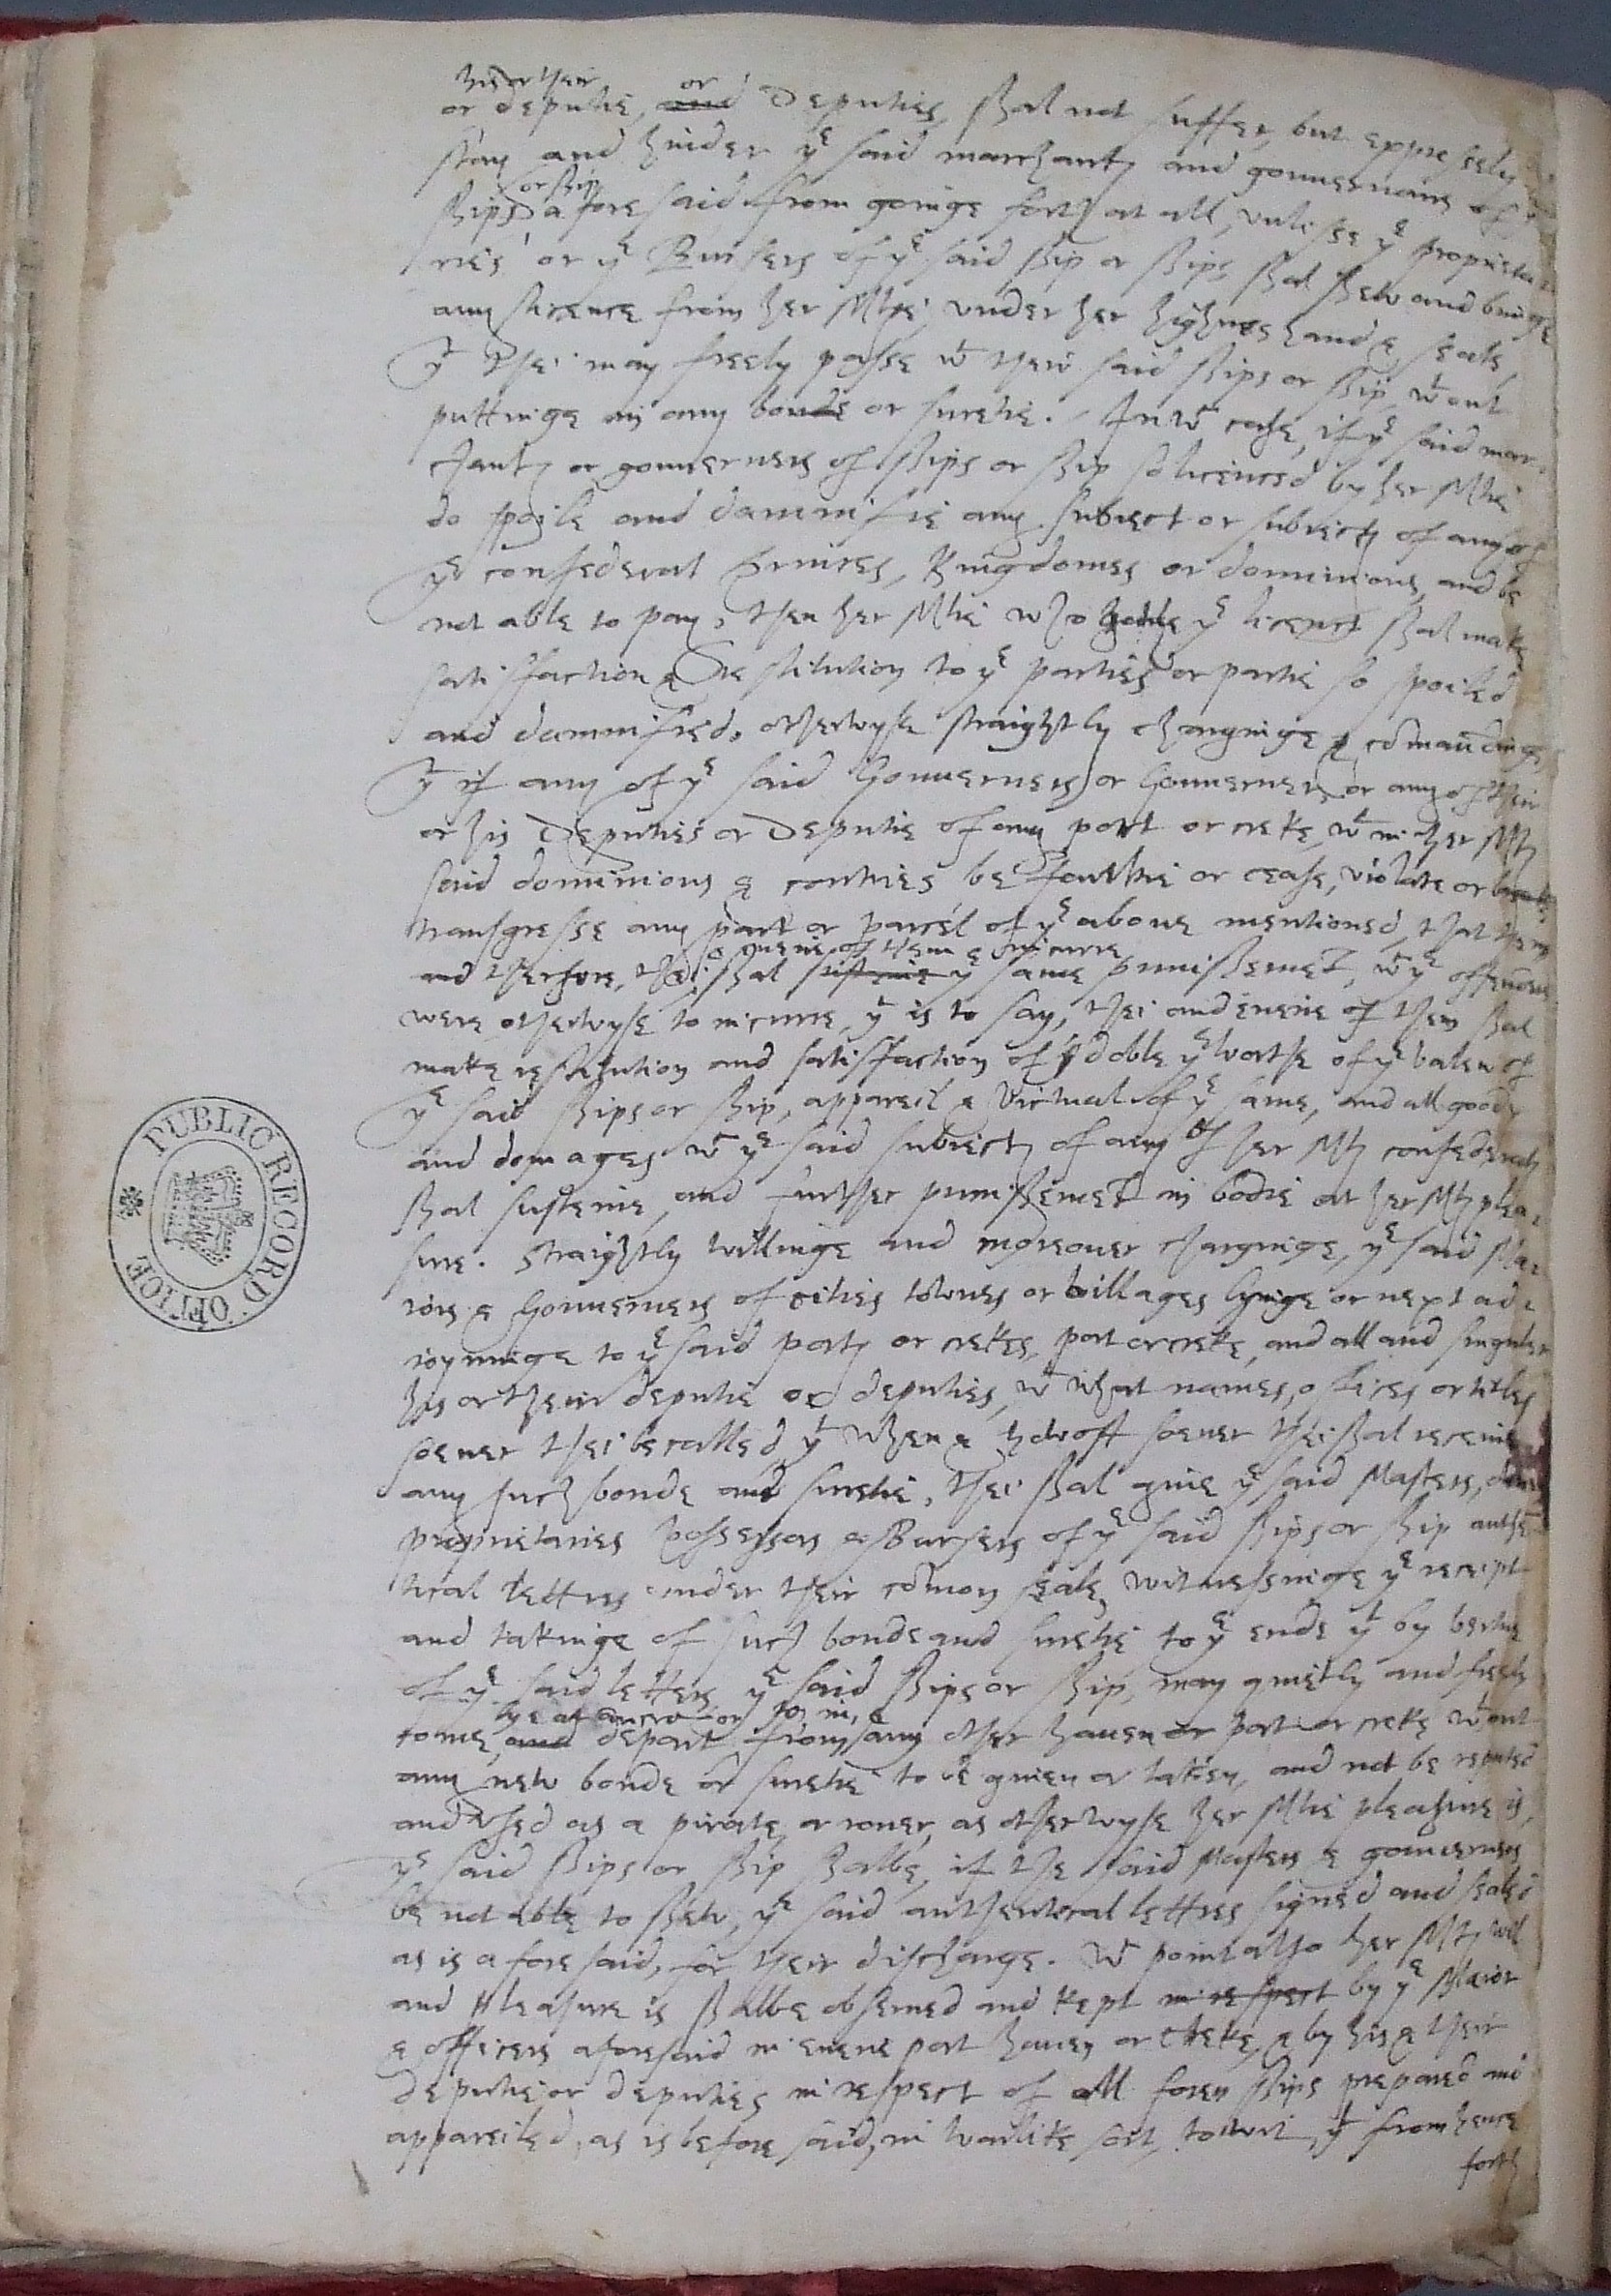 his or their or
or deputie, and Deputies, shal not suffer, but expresselie
stay and hinder yᵉ said marchantes and gouuernours of
or ship
ships a fore said from goinge forth at all, vnlesse yᵉ proprieta
ries or yᵉ Bursers of yᵉ said ship or ships shal shew and bringe
any licence from her Mtie, vnder her highnes hand & seale
yᵗ thei may freely passe wᵗ their said ships or ship, wᵗout
puttinge in any bonde or suretie. In wᶜʰ case, if yᵉ said mar
chantes or gouuerners of ships or ship so licenced by her Mtie
do spoile and damnifie any subiect or subiectes of any of
yᵉ confederat Princes, Kingdomes or dominions, and be
not able to pay, then her Mtie who yᵉ licence shal make
satisfaction & Restitution to yᵉ parties or partie so spoiled
and damnified, otherwyse straightly charginge & cōmaundinge
yᵗ if any of yᵉ said Gouuerners or Gouuerner, or any of their
or his Deputies or Deputie of any port or creke, wᵗin her Mtes
said dominions & contries, be faultie or cease, violate or
transgresse any part or parcel of yᵉ aboue mentioned, that then
& euerie of them & incurre
and therfore, thei shal susteine yᵉ same punishemēt, wᶜʰ yᵉ offendours
were otherwyse to incurre, yᵗ is to say, thei and euerie of them shal
make restitution and satisfaction of yᵉ doble yᵉ worthe of yᵉ valew of
yᵉ said ships or ship, appareil & victual of yᵉ same, and all goodes
and domages wᶜʰ yᵉ said subiectes of any of her Mtes confederates
shal susteine, and further punishemēt in bodie at her Mtes plea
sure. Straightly willinge and moreouer charginge, yᵉ said Ma
iors & Gouuerners of cities townes or villages lyinge or next ad
ioyninge to yᵉ said portes or crekes, port or creke, and all and singuler
his or their deputie or deputies, wᵗ what names, offices or titles
soeuer thei be called yᵗ when & howoft soeuer thei shal receiue
any such bonde and suretie, thei shal giue yᵉ said Masters,
proprietaries possessors & Bursers of yᵉ said ships or ship authē
tical letters vnder their cōmon seale, witnessinge yᵉ receipt
and takinge of such bonde and suretie to yᵉ ende yᵗ by vertue
of yᵉ said letters yᵉ said ships or ship, may quietly and freely
lye at ancre or go in, &
come and depart from any other hauen or port or creke wᵗout
any new bonde or suretie to be giuen or taken, and not be reputed
and vsed as a pirate or rouer, as otherwyse her Mtie pleasure is,
yᵉ said ships or ship shalbe, if the said Masters & gouuerners
be not able to shew, yᵉ said authentical letters signed and sealed
as is a fore said, for their discharge. Wᶜʰ point also her Mtes wil
and pleasure is shalbe obserued and kept in respect by yᵉ Maior
& officers aforesaid in euerie port hauen or creke, & by his & their
deputie or deputies in respect of all foren ships prepared and
appareiled, as is before said, in warlike sort, towit, yᵗ from hence
forth
PUBLIC RECORD OFFICE